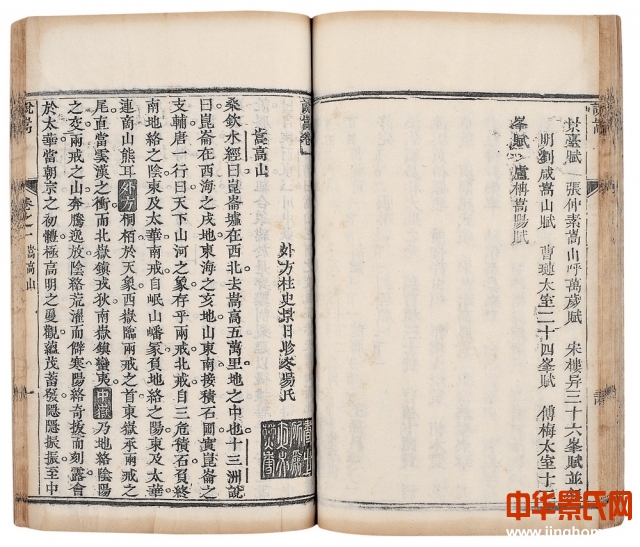 景臺賦 張仲素嵩山呼萬歲賦 宋樓异三十六峯賦並
明劉咸嵩山賦 曹璉太室二十四峯賦 傅梅太室十
峯賦 盧傳嵩陽賦
說嵩
說嵩卷
外方柱史景日昣冬陽氏
嵩高山
桑欽水經曰崑崙墟在西北去嵩高五萬里地之中也十三洲說
曰崑崙在西海之戌地東海之亥地山東南接積石圃實崑崙之
支輔唐一行曰天下山河之象存乎兩戒北戒自三危積石負終
南地絡之陰東及太華南戒自岷山嶓冢負地絡之陽東及太華
連商山熊耳外方桐栢於天象西嶽臨兩戒之首東嶽承兩戒之
尾直當雲漢之衝而北嶽鎮戎狄南嶽鎮蠻夷中嶽乃地絡陰陽
之交兩戒之山奔騰逸放陰絡荒濯而僻寒陽絡奇援而刻露會
於太華當朝宗之初體極高明之曼觀蘊茂蓄發隱隱振振至中
說嵩 卷之一 嵩高山 一
中华景氏网
www.jingho